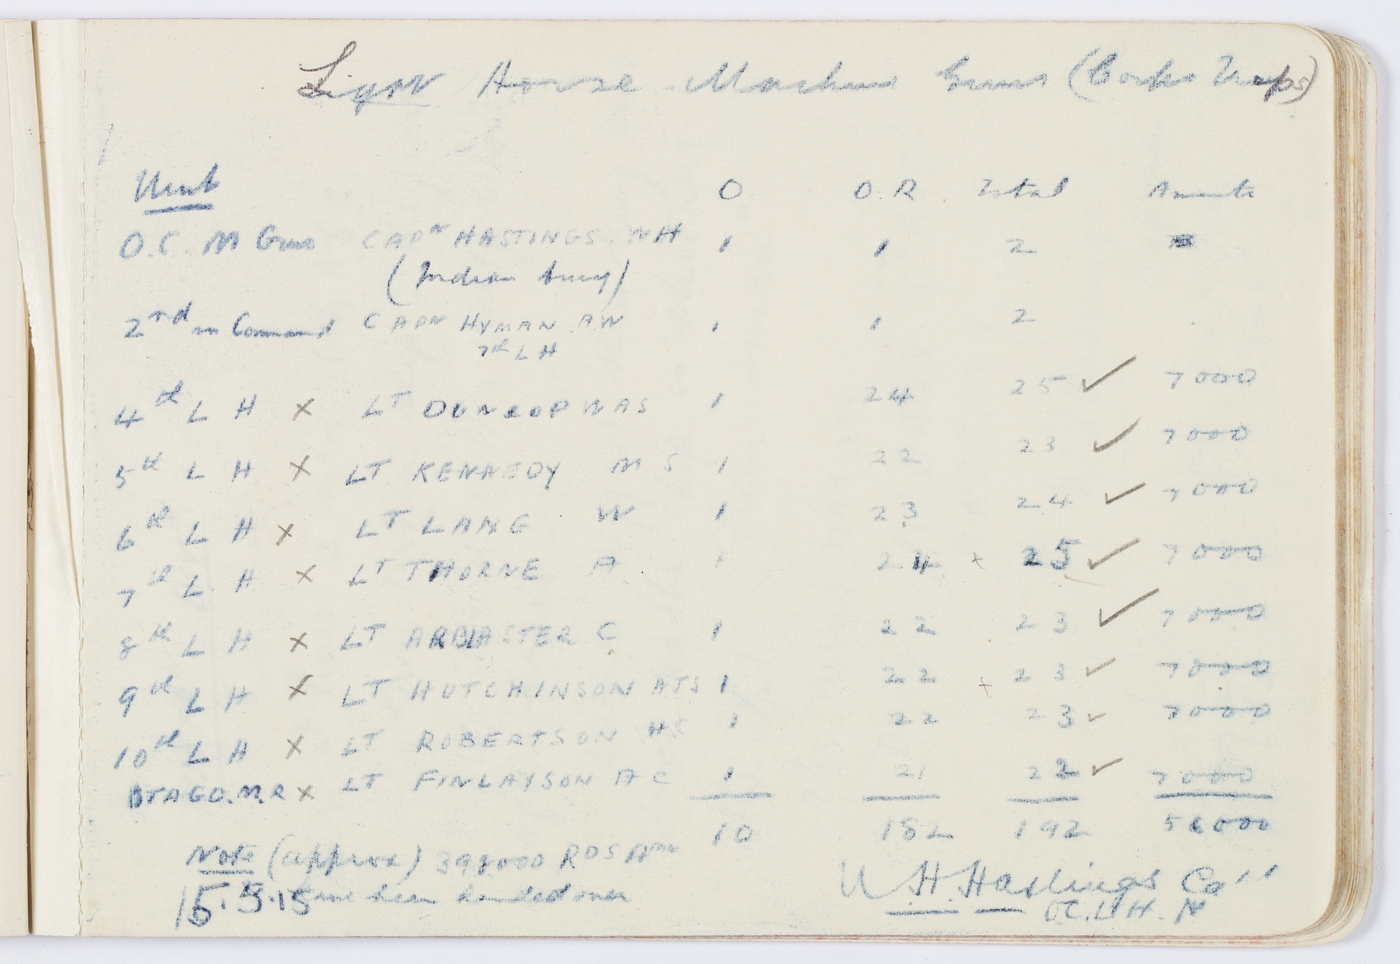 Light Horse Machine Guns (Corps Troops)
Unit O O.R. Total Ammts
O.C. M Guns CAPN HASTINGS. WH 1 1 2
(Indian Army)
2nd in Command CAPN HYMAN. AW 1 1 2
7th L H
4th L H x LT DUNLOP WAS 1 24 25 ✓ 7000
5th L H x LT KENNEDY M S 1 22 23 ✓ 7000
6th L H x LT LANG W 1 23 24 ✓ 7000
7th L H x LT THORNE A 1 24 + 25 ✓ 7000
8th L H x LT ARBLASTER C 1 22 23 ✓ 7000
9th L H x LT HUTCHINSON ATS 1 22 + 23 ✓ 7000
10th L H x LT ROBERTSON HS 1 22 23 ✓ 7000
OTAGO. M. R x LT FINLAYSON A C 1 21 22 ✓ 7000
10 182 192 56000
Note (approx) 398000 RDS Amn
have been handed over
15.5.15
W.H. Hastings Capt
OC. L H. M